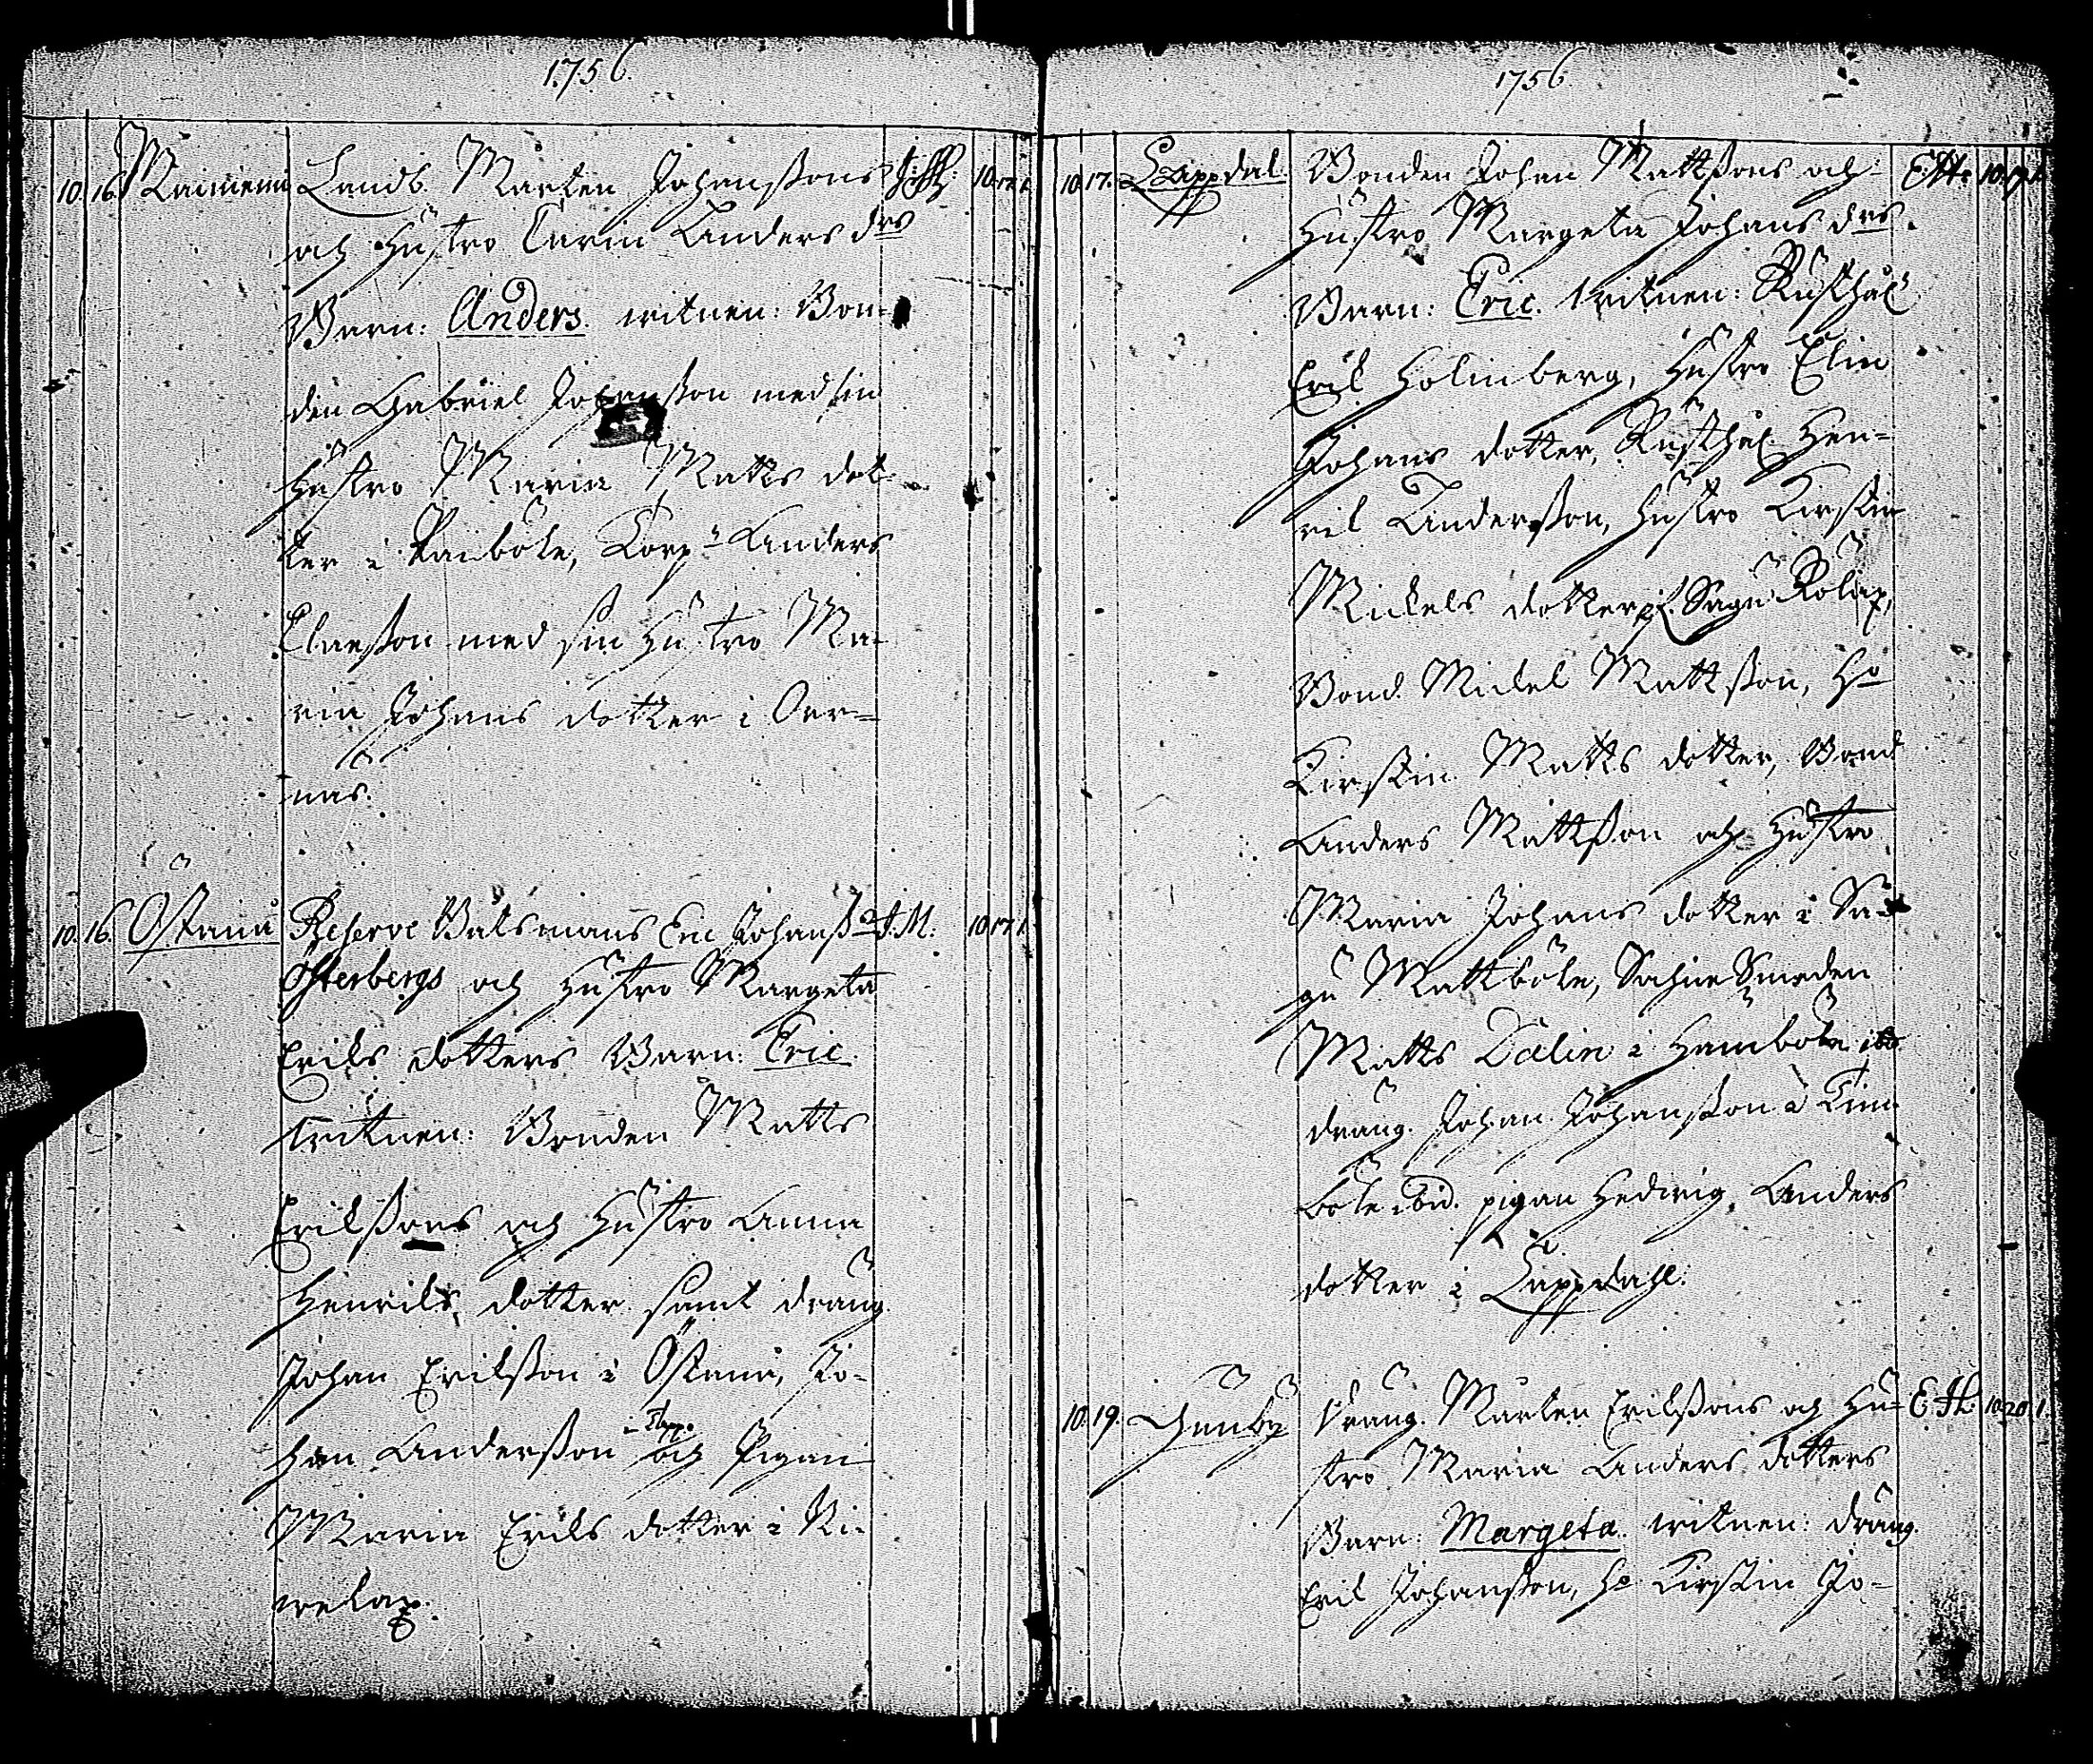 1756.
10. 16. Raimemi Landb. Mårten Johanssons J:H: 10. 17. 1.
och Hustro Carin Anders drs
Barn: Anders. witnen: Bon-
den Gabriel Johansson med sin
Hustro Maria Matts dot-
ter i Kaiböle, Corp:n Anders
Claesson med sin Hustro Ma-
ria Johans dotter i Oer-
nas.
10. 16. Östanå Reserve Båtsmans Eric Johanss. J.M. 10. 17. 1.
Österbergs och Hustro Margeta
Eriks dotters Barn: Eric.
witnen: Bonden Matts
Erikssons och Hustro Anna
Henriks dotter samt dräng.
Johan Eriksson i Östanå, Jo-
han Andersson och Pigan
Maria Eriks dotter i Ni-
welax.
1756.
10. 17. Lappdal. Bonden Johan Mattssons och E.H. 10. 19. 1.
Hustro Margeta Johans drs.
Barn: Eric. witnen: Rusthål.
Erik Holmberg, Hustro Elin
Johans dotter, Rusthål. Hen-
rik Andersson, Hustro Kirstin
Mickels dotter på Sagu Rölax,
Bond. Mickel Mattsson, Ho
Kirstin Matts dotter, Bond
Anders Mattsson och Hustro
Maria Johans dotter i Sa-
gu Mattböle, Sockne Smeden
Matts Dalin i Hamböle
dräng. Johan Johansson i Tim-
böle ibid. pigan Hedwig Anders
dotter i Lappdahl.
10. 19. Genby dräng. Mårten Erikssons och Hu- E.H. 10. 20. 1.
stro Maria Anders dotters
Barn: Margeta. witnen: dräng.
Erik Johansson, Ho Kirstin Jo-